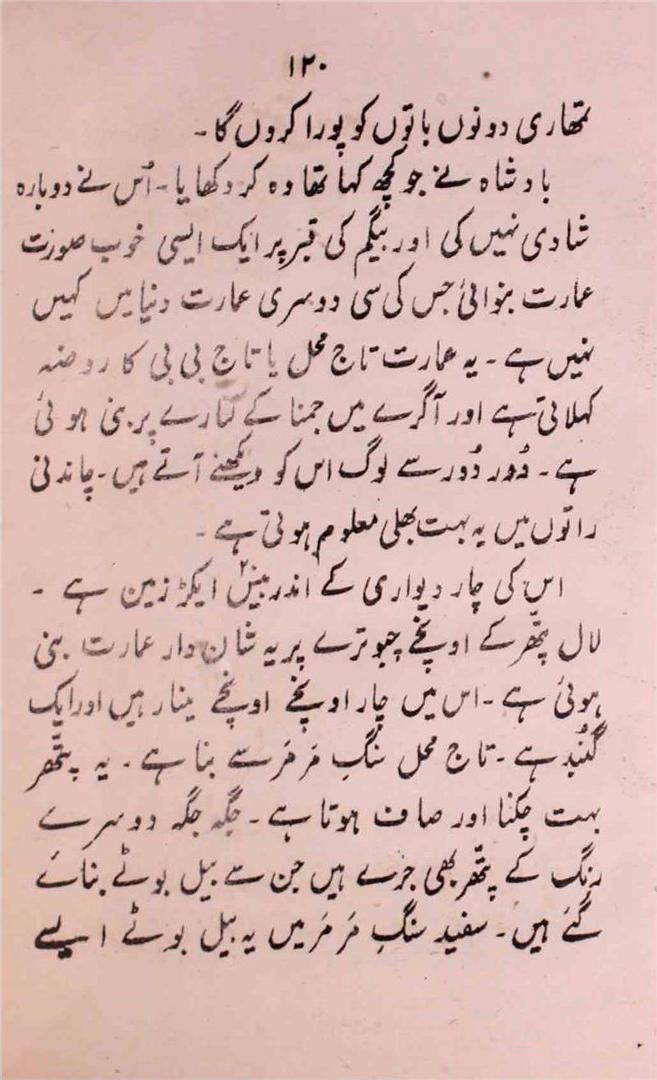 ۱۲۰
تمھاری دونوں باتوں کو پورا کروں گا۔
بادشاہ نے جو کچھ کہا تھا وہ کر دکھایا۔ اُس نے دوبارہ
شادی نہیں کی اور بیگم کی قبر پر ایک ایسی خوب صورت
عمارت بنوائی جس کی سی دوسری عمارت دنیا میں کہیں
نہیں ہے۔ یہ عمارت تاج محل یا تاج بی بی کا روضہ
کہلاتی ہے اور آگرے میں جمنا کے کنارے پر بنی ہوئی
ہے۔ دُور دُور سے لوگ اس کو دیکھنے آتے ہیں۔ چاندنی
راتوں میں یہ بہت بھلی معلوم ہوتی ہے۔
اس کی چار دیواری کے اندر بیس۲۰ ایکڑ زمین ہے۔
لال پتّھر کے اونچے چبوترے پر یہ شان دار عمارت بنی
ہوئی ہے۔ اس میں چار اونچے اونچے مینار ہیں اور ایک
گنبد ہے۔ تاج محل سنگِ مَرمَر سے بنا ہے۔ یہ پتّھر
بہت چکنا اور صاف ہوتا ہے۔ جگہ جگہ دوسرے
رنگ کے پتّھر بھی جڑے ہیں جن سے بیل بوٹے بنائے
گئے ہیں۔ سفید سنگِ مَرمَر میں یہ بیل بوٹے ایسے